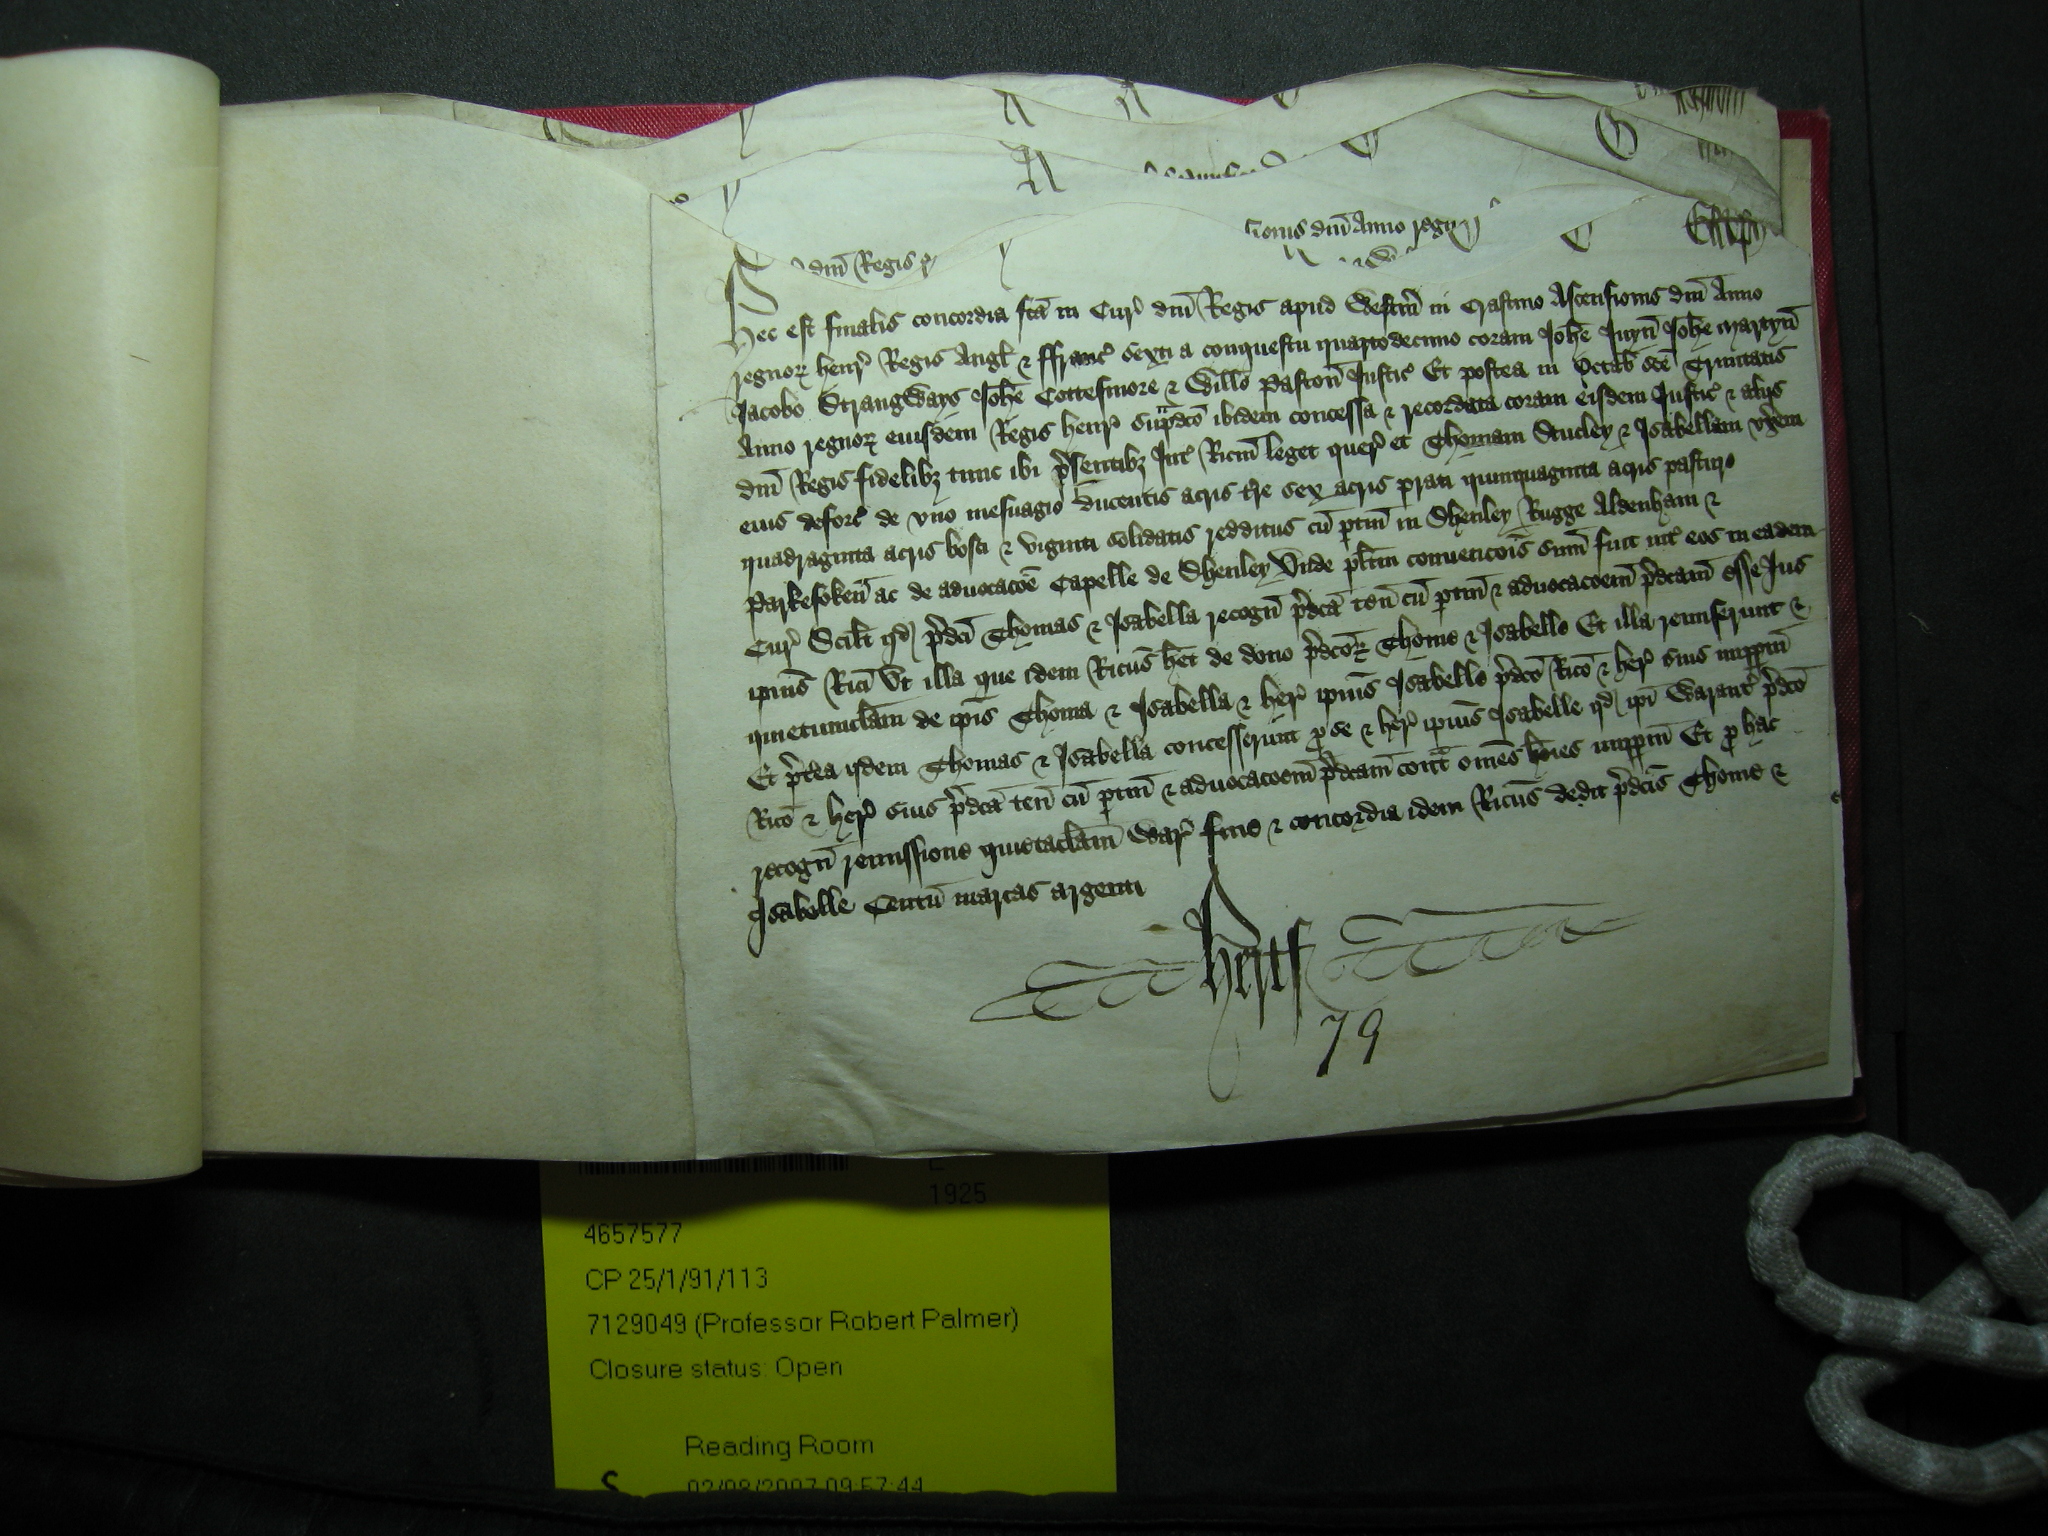 dm̄ Regis
Hec est finalis concordia fc̄a in Cur̉ dm̄ Regis apud Westm̄ in Crastino Ascensionis dm̄ Anno
regnoꝝ henr̉ Regis Angl̉ ⁊ ffranc̉ sexti a conquestu quartodecimo coram Joh̄e Juyn̄ Joh̄e Martyn̄
Jacobo Strangways Joh̄e Cottesmore ⁊ Will̄o Paston̄ Justic̉ Et postea in Octab̉ sc̄e Trinitatis
Anno regnoꝝ eiusdem Regis henr̉ sup̄dc̄o ibidem concessa ⁊ recordata coram eisdem Justic̉ ⁊ alijs
dm̄ Regis fidelibꝫ tunc ibi p̉sentibꝫ Int̉ Ric̄m leget quer̉ et Thomam Stucley ⁊ Isabellam vx̉em
eius deforc̉ de vno mesuagio ducentis acris t̉re sex acris prati quinquaginta acris pasture
quadraginta acris bosci ⁊ viginti solidatis redditus cū ptin̄ in Shenley Rugge Aldenham ⁊
Parkesoken̄ ac de aduocac̄oe Capelle de Shenley Vnde pl̄itm conuenc̄ois sum̄ fuit int̉ eos in eadem
Cur̉ Scil̄t qd̉ p̉dc̄i Thomas ⁊ Isabella recogn̄ p̉dc̄a ten̄ cū ptin̄ ⁊ aduocac̄oem p̉dc̄am esse Jus
ipius̄ Ric̄i Vt illa que idem Ric̄us h̄et de dono p̉dc̄oꝝ Thome ⁊ Isabelle Et illa remiserunt ⁊
quietumclam̄ de ip̄is Thoma ⁊ Isabella ⁊ her̉ ipius̄ Isabelle p̉dc̄o Ric̄o ⁊ her̉ suis imppm̄
Et p̉t̉ea ijdem Thomas ⁊ Isabella concesserunt p se ⁊ her̉ ipius̄ Isabelle qd̉ ip̄i Warant̉ p̉dc̄o
Ric̄o ⁊ her̉ suis p̉dc̄a ten̄ cū ptin̄ ⁊ aduocac̄oem p̉dc̄am cont̉ om̄es hōies imppm̄ Et p hac
recogn̄ remissione quietaclam̄ War̉ fine ⁊ concordia idem Ric̄us dedit p̉dc̄is Thome ⁊
Isabelle Centū marcas argenti
hertf
79
1925
4657577
CP 25/1/91/113
7129049 (Professor Robert Palmer)
Closure status: Open
Reading Room
S 02/08/2007 09:57:44